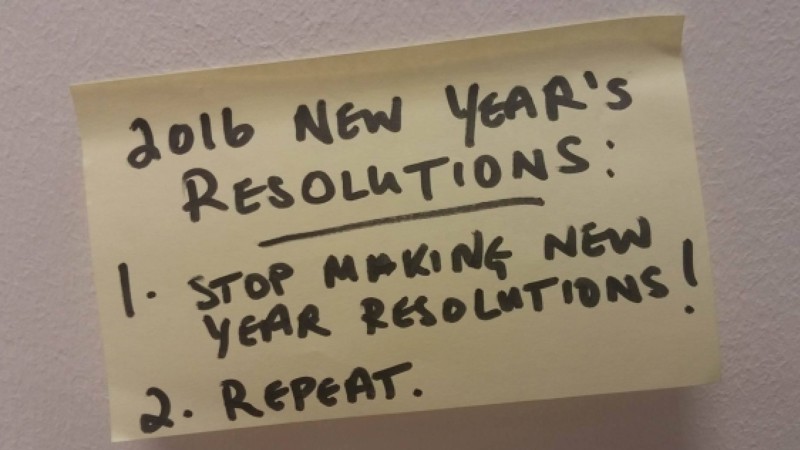 2016 NEW YEAR'S
RESOLUTIONS:
1. STOP MAKING NEW
YEAR RESOLUTIONS!
2. REPEAT.